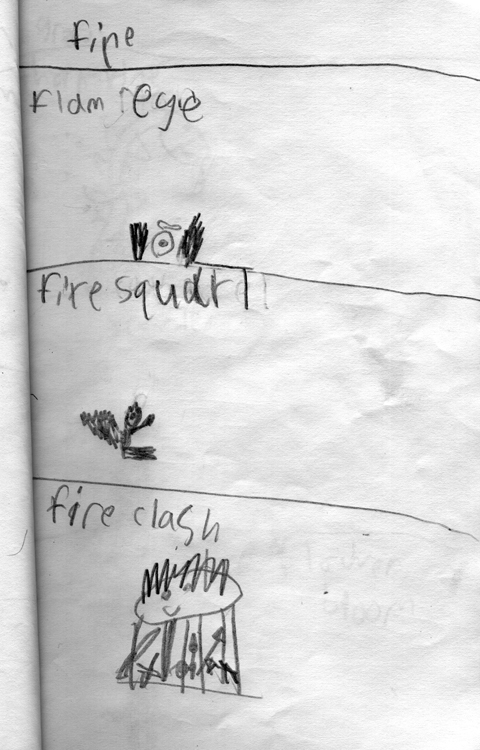 fire
flam eye
fire squarl
fire clash